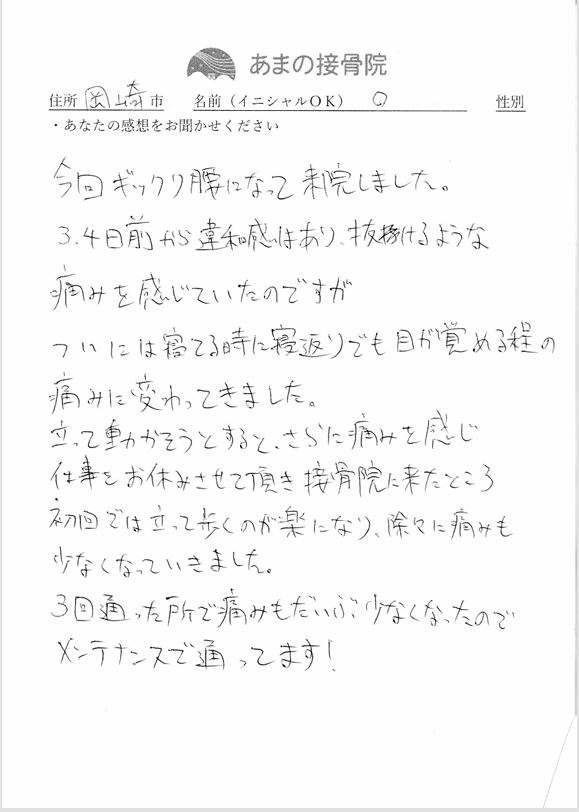 あまの接骨院
住所 岡崎市 名前(イニシャルOK) O 性別
・あなたの感想をお聞かせください
今回ギックリ腰になって来院しました。
3.4日前から違和感はあり、抜けるような
痛みを感じていたのですが
ついには寝てる時に寝返りでも目が覚める程の
痛みに変わってきました。
立って動かそうとすると、さらに痛みを感じ
仕事をお休みさせて頂き接骨院に来たところ
初回では立って歩くのが楽になり、除々に痛みも
少なくなっていきました。
3回通った所で痛みもだいぶ少なくなったので
メンテナンスで通ってます!